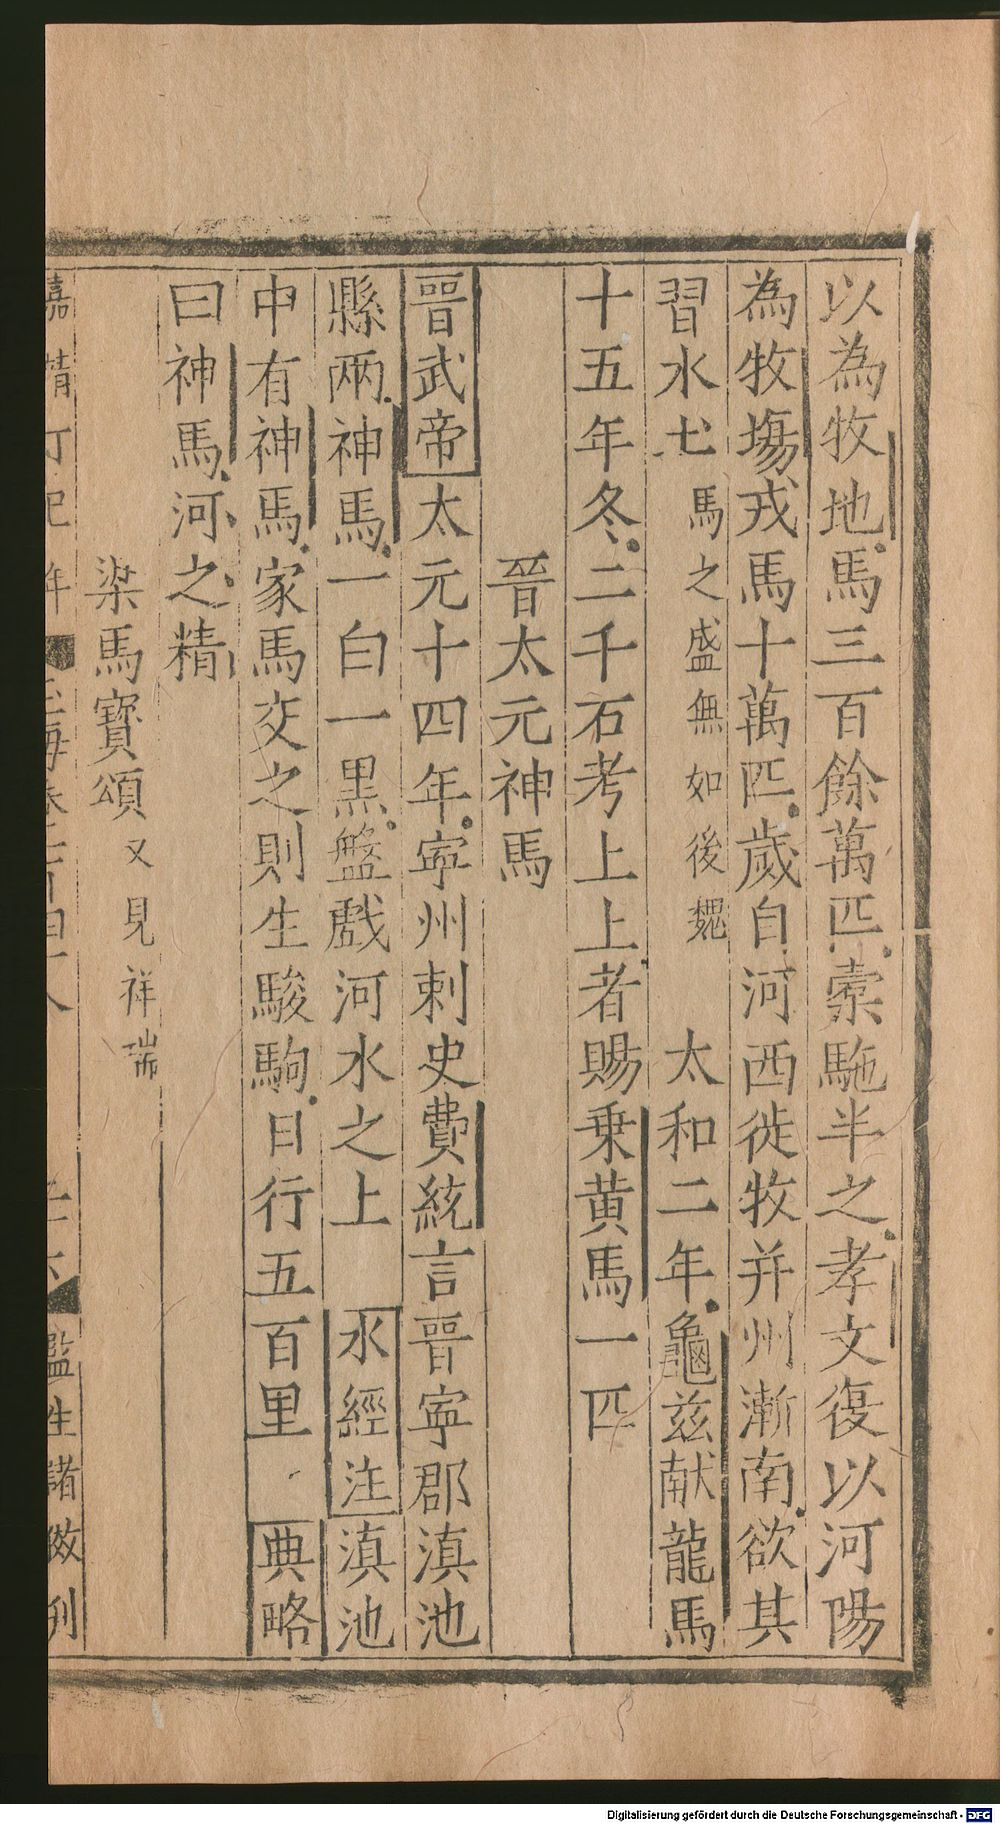 以為牧地馬三百餘萬匹橐駞半之孝文復以河陽
為牧塲戎馬十萬匹歲自河西徙牧并州漸南欲其
習水土馬之盛無如後魏 太和二年龜兹献龍馬
十五年冬二千石考上上者賜乗黄馬一匹
晉太元神馬
晉武帝太元十四年寧州刺史費統言晉寧郡滇池
縣兩神馬一白一黒盤戲河水之上 水經注滇池
中有神馬家馬交之則生駿駒日行五百里 典略
曰神馬河之精
梁馬寳頌又見祥瑞
嘉靖 年 監生諸倣刋
Digitalisierung gefördert durch die Deutsche Forschungsgemeinschaft - DFG